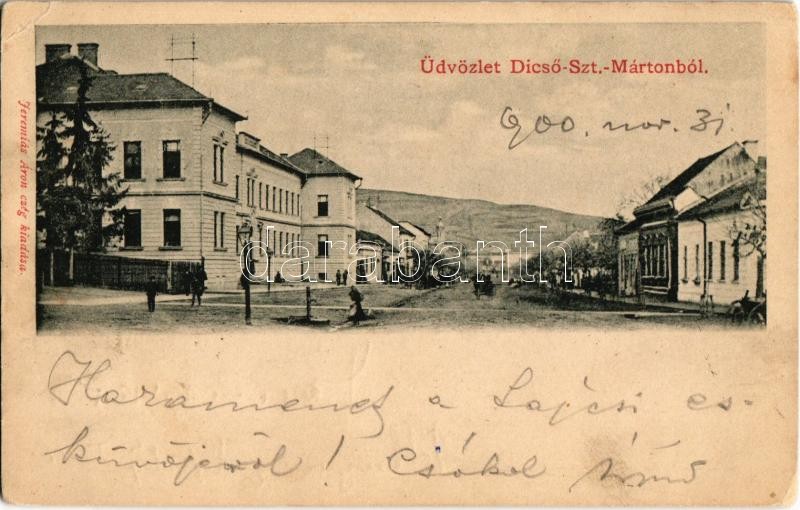 Üdvözlet Dicső-Szt.-Mártonból.
900. nov. 31.
Jeremiás Áron czég kiadása.
darabanth
a Lajcsi es-
küvőjeről! Csókol